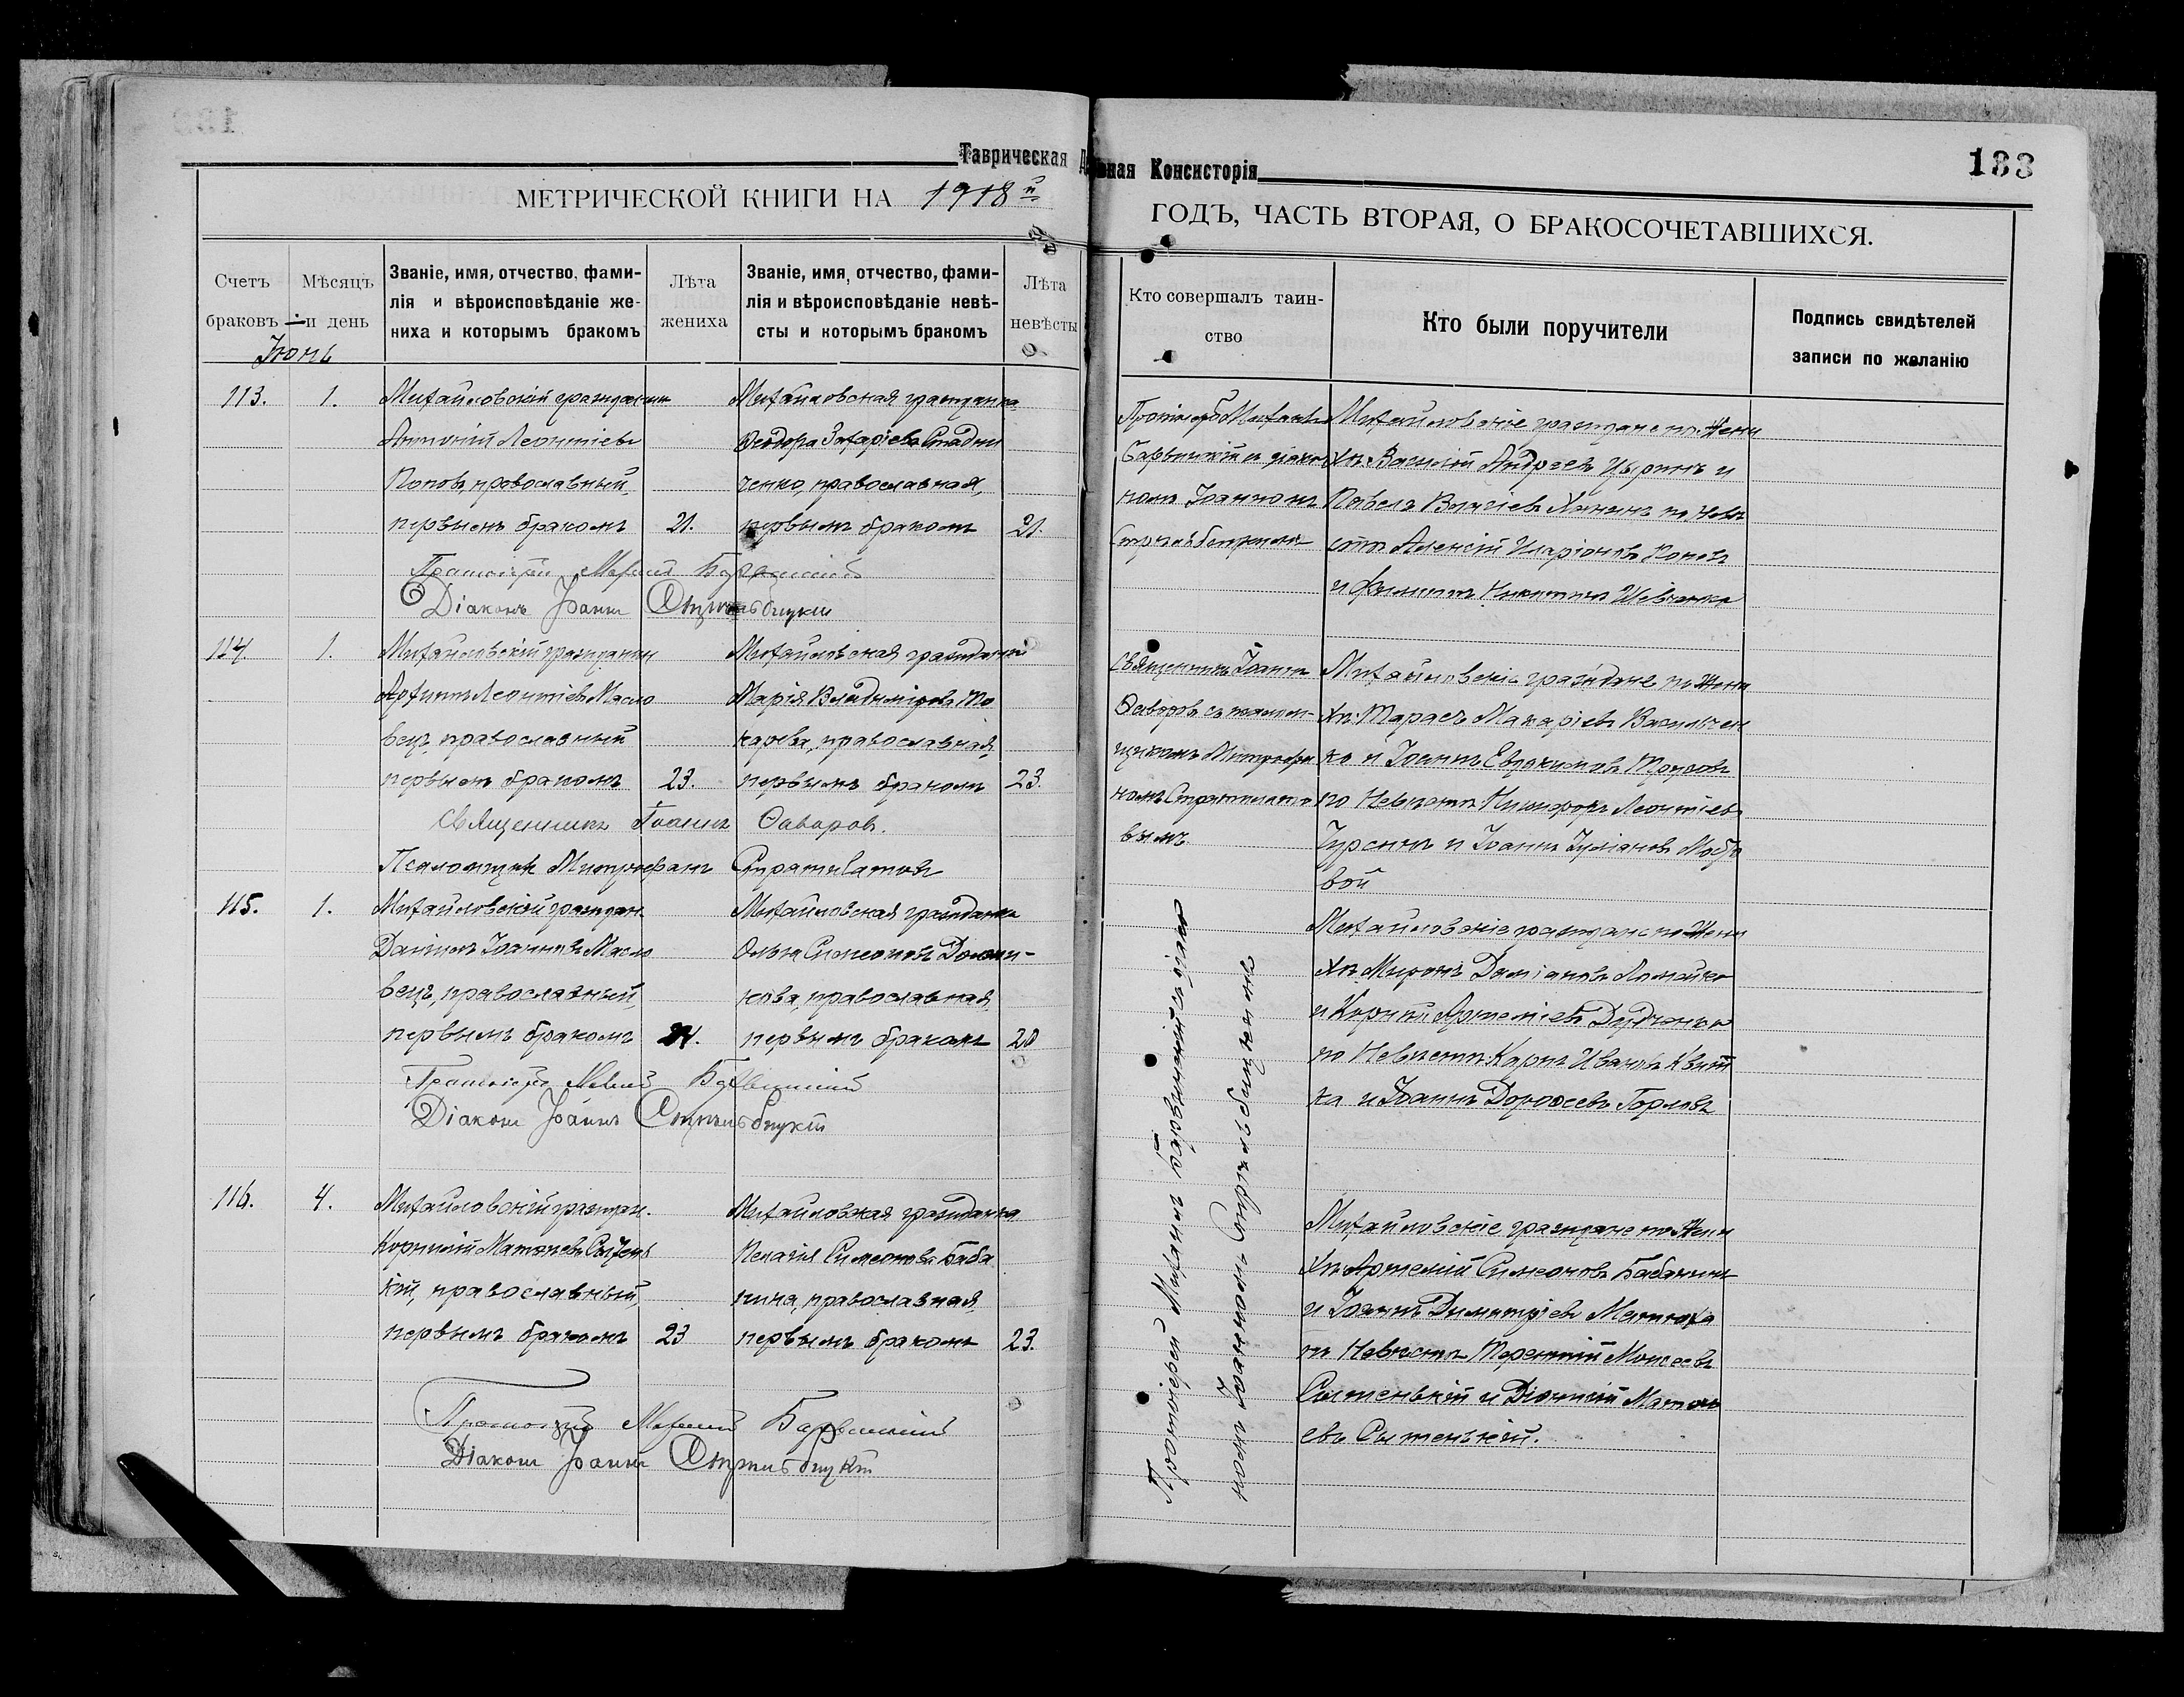 Таврическая Духовная Консисторія
183
МЕТРИЧЕСКОЙ КНИГИ НА 1918й
ГОДЪ, ЧАСТЬ ВТОРАЯ, О БРАКОСОЧЕТАВШИХСЯ.
Счетъ браковъ
Мѣсяцъ и день
Званіе, имя, отчество, фами-
лія и вѣроисповѣданіе же-
ниха и которымъ бракомъ
Лѣта
жениха
Званіе, имя, отчество, фами-
лія и вѣроисповѣданіе невѣ-
сты и которымъ бракомъ
Лѣта
невѣсты
Кто совершалъ таин-
ство
Кто были поручители
Подпись свидѣтелей
записи по желанію
Іюнь
113.
1.
Михайловскій гражданинъ
Антоній Леонтіевъ
Поповъ, православный,
первымъ бракомъ
21.
Михайловская гражданка
Ѳеодора Захаріева Стадни
ченко, православная,
первымъ бракомъ
21.
Протоіерей Михаилъ
Барвинскій съ діако
номъ Іоанномъ
Михайловскіе граждане по Жени
хѣ: Василій Андреевъ Цыринъ и
Павелъ
по Невѣ
стѣ Алексій Иларіоновъ Поповъ
и Филиппъ Никитинъ Шевченко
Діаконъ Іоаннъ
114.
1.
Михайловскій гражданин
Леонтіевъ Масло
вецъ, православный
первымъ бракомъ
23.
Михайловская гражданка
Марія Владимірова То
карева, православная,
первымъ бракомъ
23.
Священникъ Іоаннъ
Ѳаворовъ съ псалом-
щикомъ Митрофа
номъ Стратила
вымъ
Михайловскіе граждане по Жени
хѣ: Тарасъ Макаріевъ Василичен
ко и Іоаннъ Евдокимовъ
по Невѣстѣ Никифоръ Леонтіевъ
и Іоаннъ
вой
Священникъ Іоаннъ Ѳаворовъ.
Псаломщик Митрофанъ
115.
1.
Михайловскій граждан.
Даніилъ Іоанновъ Масло
вецъ, православный,
первымъ бракомъ
24.
Михайловская гражданка
Ольга Симеонова
православная
первымъ бракомъ
20
Протоіерей Михаилъ Барвинскій съ діако
номъ Іоанномъ
Михайловскіе граждане по Жени
хѣ: Миронъ Даміановъ Ломейко
и Корнилій Артеміевъ Дудченко
по Невѣстѣ: Карпъ Ивановъ Квит
ка и Іоаннъ Дороѳеевъ Горловъ
Діаконъ Іоаннъ
116.
4.
Михайловскій граждан.
Корнилій Матѳеевъ Сытень
кій, православный,
первымъ бракомъ
23
Михайловская гражданка
Пелагія Симеонова Баба
нина, православная
первымъ бракомъ
23.
Михайловскіе граждане по Жени
хѣ Артемій Симеоновъ Бабанинъ
и Іоаннъ Димитріевъ Матюха
по Невѣстѣ Терентій Моисеевъ
Сытенькій и Діонисій Матѳе
евъ Сытенькій.
Барвинскій
Діаконъ Іоаннъ